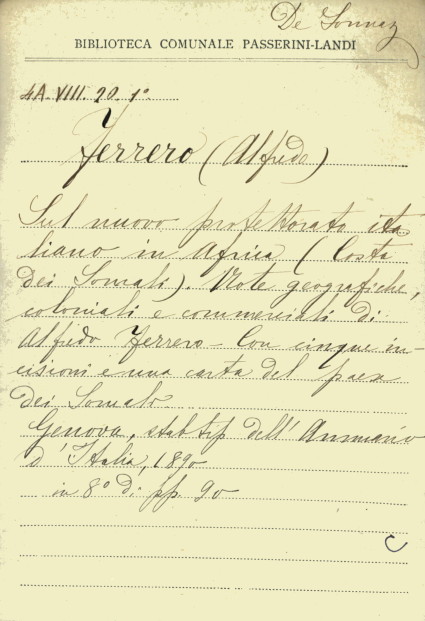 De Sonnaz
BIBLIOTECA COMUNALE PASSERINI-LANDI
4A. VIII. 20. 1°
Ferrero (Alfredo)
Sul nuovo protettorato ita
liano in Africa (Costa
dei Somali). Note geografiche,
coloniali e commerciali di
Alfredo Ferrero - Con cinque in-
cisioni e una carta del paese
dei Somali
Genova, stab tip dell'Annuario
d'Italia, 1890
in 8° di pp. 90
C